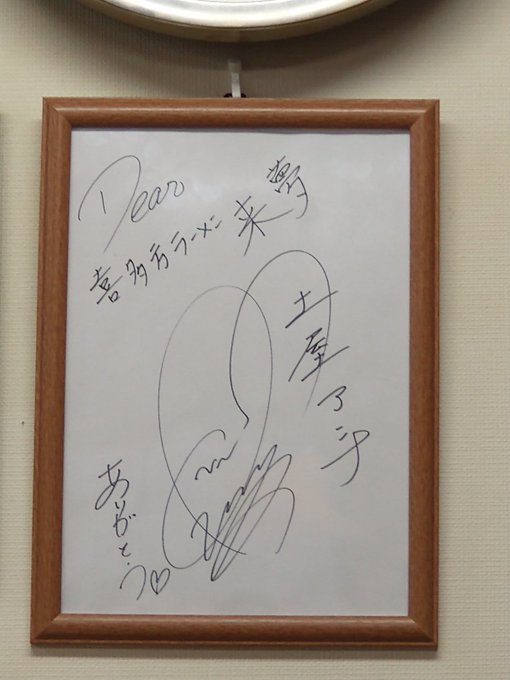 Dear
喜多方ラーメン 来夢
土屋アンナ
ありがとう♡